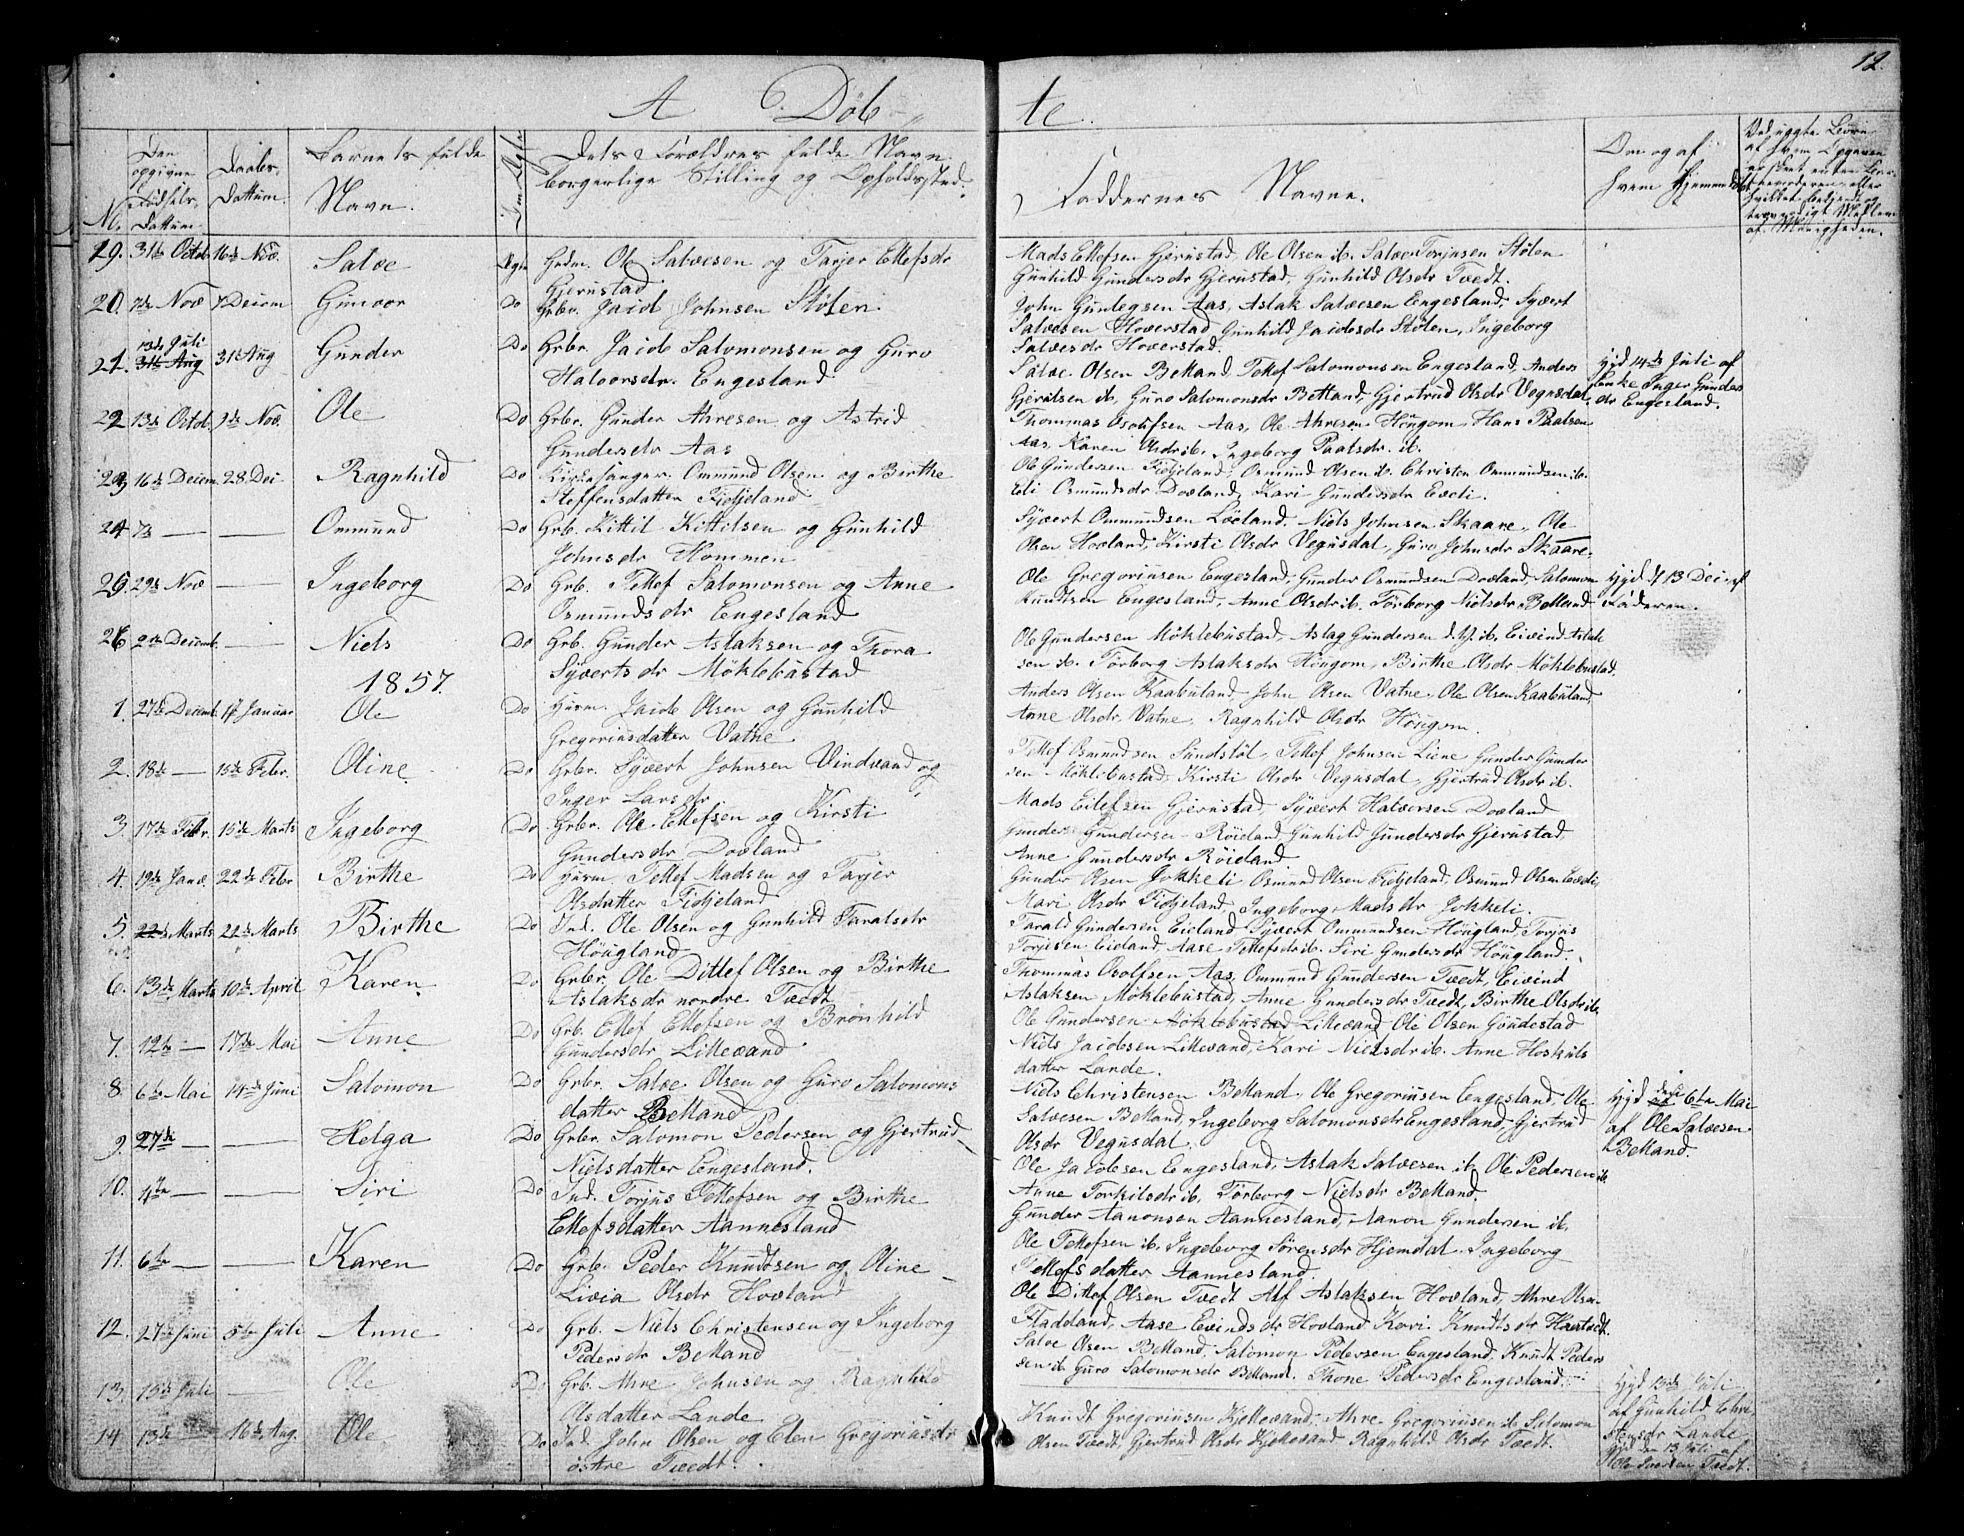 12.
A. Døb-
te.
No.
Den opgivne Fødsels Dattum.
Daabs Dattum.
Barnets fulde Navn.
Dets Forældres fulde Navn.
borgerlige Stilling og Opholdssted.
Faddernes Navne.
Om og af
hvem Hjemmedøbt
19. 31te Octob 16de Nov. Salve Ægte Grdm. Ole Salvesen og Tarjer Ellefsdr
Gjerustad
Mads Ellefsen Gjerustad, Ole Olsen ib. Salve Torjusen Stølen
Gunhild Gundersdr Gjerustad, Gunhild Olsdr Tvedt.
20. 7de Nov 7 Decem Gunvor Do Grbr. Jacob Johnsen Stølen.
John Gunlegsen Aas, Aslak Salvesen Engesland, Syvert
Salvesen Hoverstad, Gunhild Jacobsdr Stølen, Ingeborg
Salvesdr Hoverstad.
21. 13de Juli 31te Aug 31te Aug Gunder Do Grbr. Jacob Salomonsen og Guro
Halvorsdr. Engesland
Salve Olsen Belland, Tellef Salomonsen Engesland, Anders
Gjeruldsen ib, Guro Salomonsdr Belland, Gjertrud Olsdr Vegusdal,
Hjd 14de Juli af
Enke Inger Gunders
dr Engesland.
22 13de Octob. 1ste Nov. Ole Do Grbr. Gunder Ahresen og Astrid
Gundersdr Aas
Thommas Osolfsen Aas, Ole Ahresen Høugom, Hans Paalsen
Aas, Karen Olsdr ib. Ingeborg Paalsdr. ib.
23 16de Decem. 28 Dec Ragnhild Do Kirkesanger Ommund Olsen og Birthe
Steffensdatter Fidjeland
Ole Gundersen Fidjeland, Osmund Olsen ib. Christen Ommundsen ib.
Eli Osmundsdr Dovland, Kari Gundersdr Eveli.
24 — — Ommund Do Grb. Kittil Kittilsen og Gunhild
Johnsdr Hommen
Syvert Ommundsen Løvland, Niels Johnsen Skaare, Ole
Olsen Hovland, Kirsti Olsdr Vegusdal, Guro Johnsdr Skaare.
25. 29de Nov — Ingeborg Do Grb. Tellef Salomonsen og Anne
Osmundsdr Engesland
Ole Gregoriusen Engesland, Gunder Osmundsen Dovland, Salomon
Knudtsen Engesland, Anne Olsdr ib. Tørborg Nielsdr Belland
Hjd d 13 Dec. af
Faderen.
26 2den Decemb. — Niels Do Grb. Gunder Aslaksen og Thora
Syvertsdr Møklebustad
Ole Gundersen Møklebustad, Aslag Gundersen d.Y. ib. Eivind Aslak
sen ib. Tørborg Aslaksdr Høugom, Birthe Olsdr Møklebustad.
1857.
1. 27de Decemb. 17 Januar Ole Do Husm. Jacob Olsen og Gunhild
Gregoriusdatter Vatne
Anders Olsen Kaabuland John Olsen Vatne. Ole Olsen Kaabuland
Anne Olsdr. Vatne. Ragnhild Olsdr Høugom.
2. 18de — 15de Febr. Oline Do Grbr. Syvert Johnsen Vindvand og
Inger Larsdr
Tellef Osmundsen Sundstøl, Tellef Johnsen Liene, Gunder Gunder
sen Møklebustad, Kirsti Olsdr Vegusdal, Gjertrud Olsdr ib.
3. 17de Febr. 15de Marts Ingeborg Do Grbr. Ole Ellefsen og Kirsti
Gundersdr Dovland
Mads Eilefsen Gjerustad, Syvert Halvorsen Dovland
Gunder Gundersen Røiland, Gunhild Gundersdr Gjerustad,
Anne Gundersdr Røiland
4. 19de Janv. 22de Febr Birthe Do Husm. Tellef Madsen og Tarjer
Olsdatter Fidjeland
Gunder Olsen Jokkeli Osmund Olsen Fidjeland, Osmund Olsen Eveli,
Mari Olsdr Fidjeland, Ingeborg Madsdr Jokkeli.
5. 22de Marts 22de Marts Birthe Do Ind. Ole Olsen og Gunhild Taralsdr
Høugland
Tarald Gundersen Eieland, Syvert Ommundsen Høugland, Torjus
Torjesen Eieland, Aase Tellefsdr ib. Siri Gundersdr Høugland.
6. 13de Marts 10de April Karen Do Grbr. Ole Ditlef Olsen og Birthe
Aslaksdr nordre Tvedt
Thommas Osolfsen Aas, Ommund Gundersen Tvedt, Eivind
Aslaksen Møklebustad, Anne Gundersdr Tvedt, Birthe Olsdr ib.
7. 12te — 17de Mai Anne Do Grb. Ellef Ellefsen og Brønhild
Gundersdr Lillevand
Ole Gundersen Møklebustad Lillevand, Ole Olsen Goudestad
Niels Jacobsen Lillevand, Kari Nielsdr ib. Anne Hoskuls
datter Lande.
8 6te Mai 14de Juni Salomon Do Grbr. Salve Olsen og Guro Salomons
datter Belland
Niels Christensen Belland, Ole Gregoriusen Engesland, Ole
Salvesen Belland, Ingeborg Salomonsdr Engesland, Gjertrud
Olsdr Vegusdal.
Hjd den 6te Mai
af Ole Salvesen
Belland.
9. 27de — — Helga Do Grbr. Salomon Pedersen og Gjertrud
Nielsdatter Engesland.
Ole Jacobsen Engesland, Aslak Salvesen ib. Ole Pedersen ib.
Anne Torkilsdr ib. Tørborg Nielsdr Belland.
10. 4de — — Siri Do Ind. Torjus Tellefsen og Birthe
Ellefsdatter Aannesland
Gunder Aanonsen Aannesland, Aanon Gundersen ib.
Ole Tellefsen ib. Ingeborg Sørensdr Hjemdal. Ingeborg
Tellefsdatter Aannesland.
11. 6te — — Karen Do Grb. Peder Knudtsen og Oline
Livia Olsdr Hovland
Ole Ditlef Olsen Tvedt Alf Aslaksen Hovland, Ahre Olsen
Fladeland, Aase Eivindsdr Hovland Kari Knudtsdr Haavedt.
12. 27de Juni 5te Juli Anne Do Grb. Niels Christensen og Ingeborg
Pedersdr Belland
Salve Olsen Belland, Salomon Pedersen Engesland. Knudt Peders
sen ib Guro Salomonsdr Belland. Thone Pedersdr Engesland.
13. 15de Juli — Ole Do Grb. Ahre Johnsen og Ragnhild
Olsdatter Lande
Knudt Gregoriusen Kjellevand, Ahre Gregoriusen ib Salomon
Hjd 13de Juli
af Gunhild Chri
stensdr Lande
14 13de — 16de Aug. Ole Do Ind. John Olsen og Elen Gregoriusdr
østre Tvedt.
Olsen Tvedt, Gjertrud Olsdr Kjellevand Ragnhild Olsdr Tvedt.
Hjd den 13 Juli af